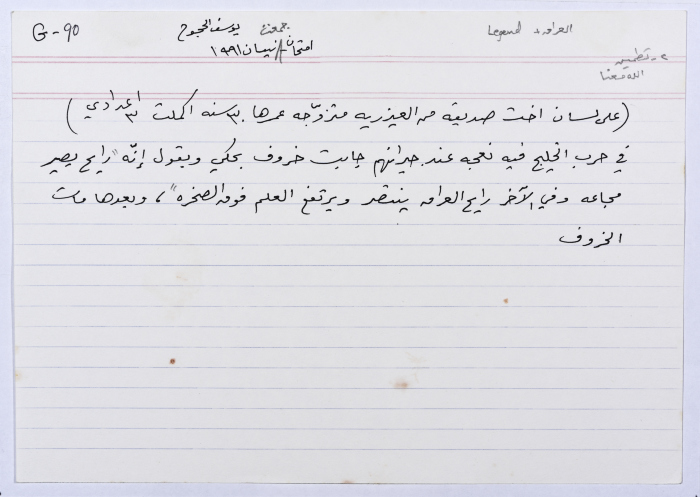 G-90
جمعها يوسف الحجوج
امتحان نيسان ١٩٩١
العراق + Legend
٢- تطمين
الله معنا
(على لسان اخت صديقة من العيزرية متزوّجه عمرها ٣٠ سنه اكملت ٣ اعدادي)
في حرب الخليج فيه نعجه عند جيرانهم جابت خروف بحكي وبقول إنّه "رايح يصير
مجاعه وفي الآخر رايح العراق ينتصر ويرتفع العلم فوق الصخره"، وبعدها مات
الخروف